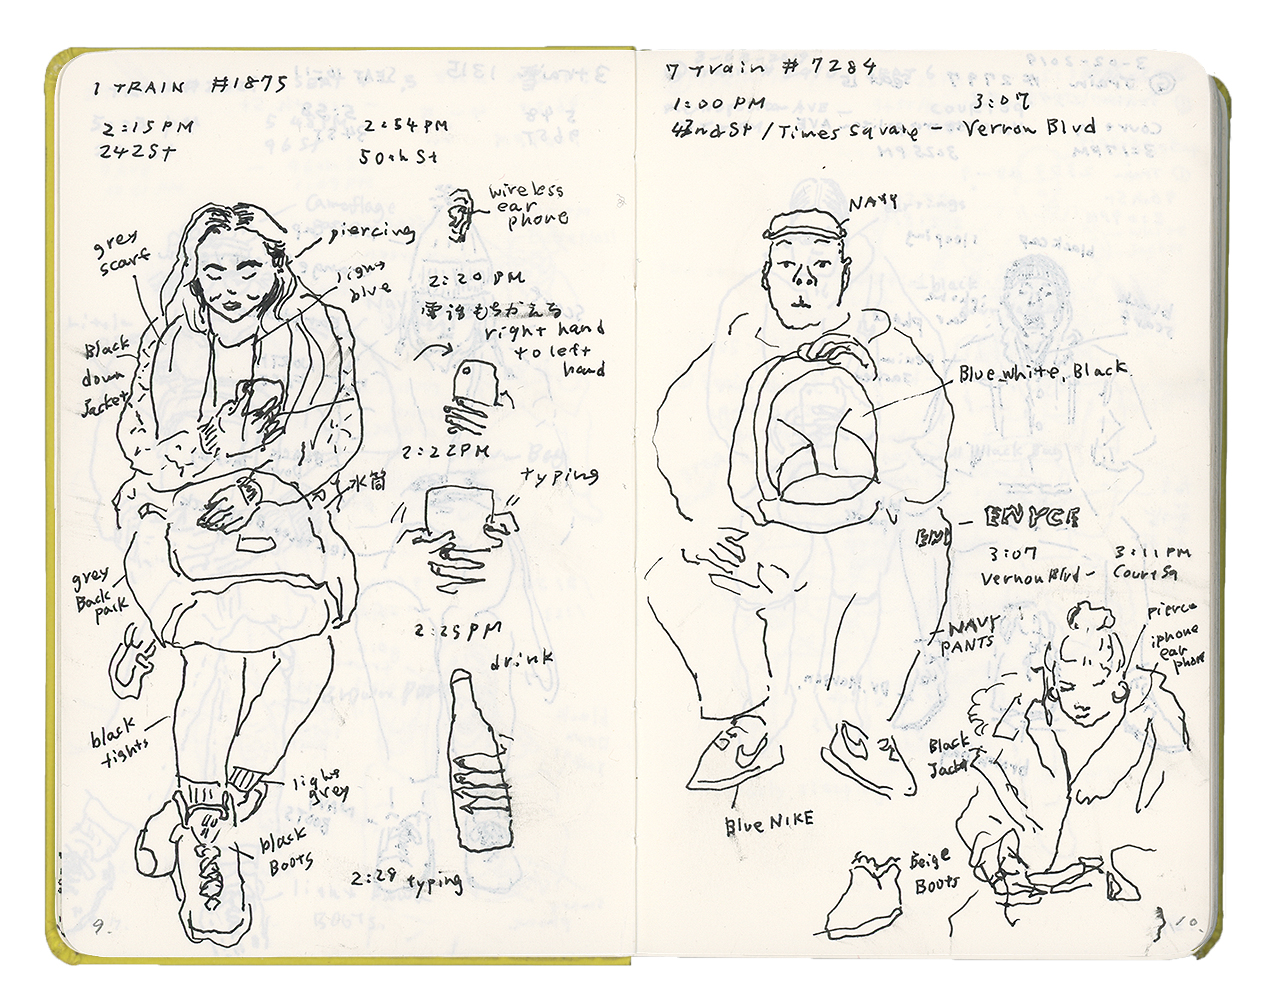 1 TRAIN #1875
2:15PM
242St
2:54PM
50th St
wireless
ear
phone
piercing
grey
scarf
light
blue
Black
down
Jacket
2:20 PM
電話もちかえる
right hand
to left
hand
2:22PM
typing
水筒
grey
Back
pack
2:25PM
drink
black
tights
light
grey
black
Boots
2:28 typing
9.
7 Train # 7284
1:00 PM
3:07
42nd St / Times Square - Vernon Blvd
NAVY
Blue, White, Black
ENYCE
3:07
Vernon Blvd -
3:11 PM
Court Sq
NAVY
PANTS
Pierce
iphone
ear
phone
Black
Jacket
Blue NIKE
Beige
Boots
10.